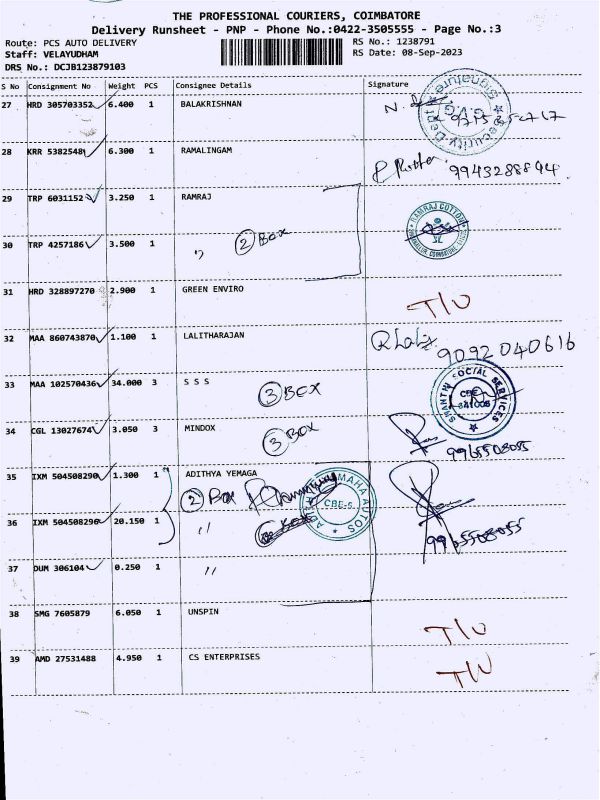 THE PROFESSIONAL COURIERS, COIMBATORE
Delivery Runsheet - PNP - Phone No.:0422-3505555 - Page No.:3
Route: PCS AUTO DELIVERY RS No.: 1238791
Staff: VELAYUDHAM RS Date: 08-Sep-2023
DRS No.: DCJB123879103
S No Consignment No Weight PCS Consignee Details Signature
27 HRD 305703352 6.400 1 BALAKRISHNAN
28 KRR 5382548 6.300 1 RAMALINGAM
9943288894
29 TRP 6031152 3.250 1 RAMRAJ
RAMRAJ COTTON
30 TRP 4257186 3.500 1 " 2 Box
31 HRD 328897270 2.900 1 GREEN ENVIRO T/U
32 MAA 860743870 1.100 1 LALITHARAJAN
9092040616
33 MAA 102570436 34.000 3 S S S 3 BOX
SHANTHI SOCIAL SERVICES
34 CGL 13027674 3.050 3 MINDOX 3 BOX
9965508055
35 IXM 504508290 1.300 1 ADITHYA YEMAGA
2 Box
CBE-6
36 IXM 504508296 20.150 1 "
9965508055
37 DUM 306104 0.250 1 "
38 SMG 7605879 6.050 1 UNSPIN T/U
39 AMD 27531488 4.950 1 CS ENTERPRISES T/U